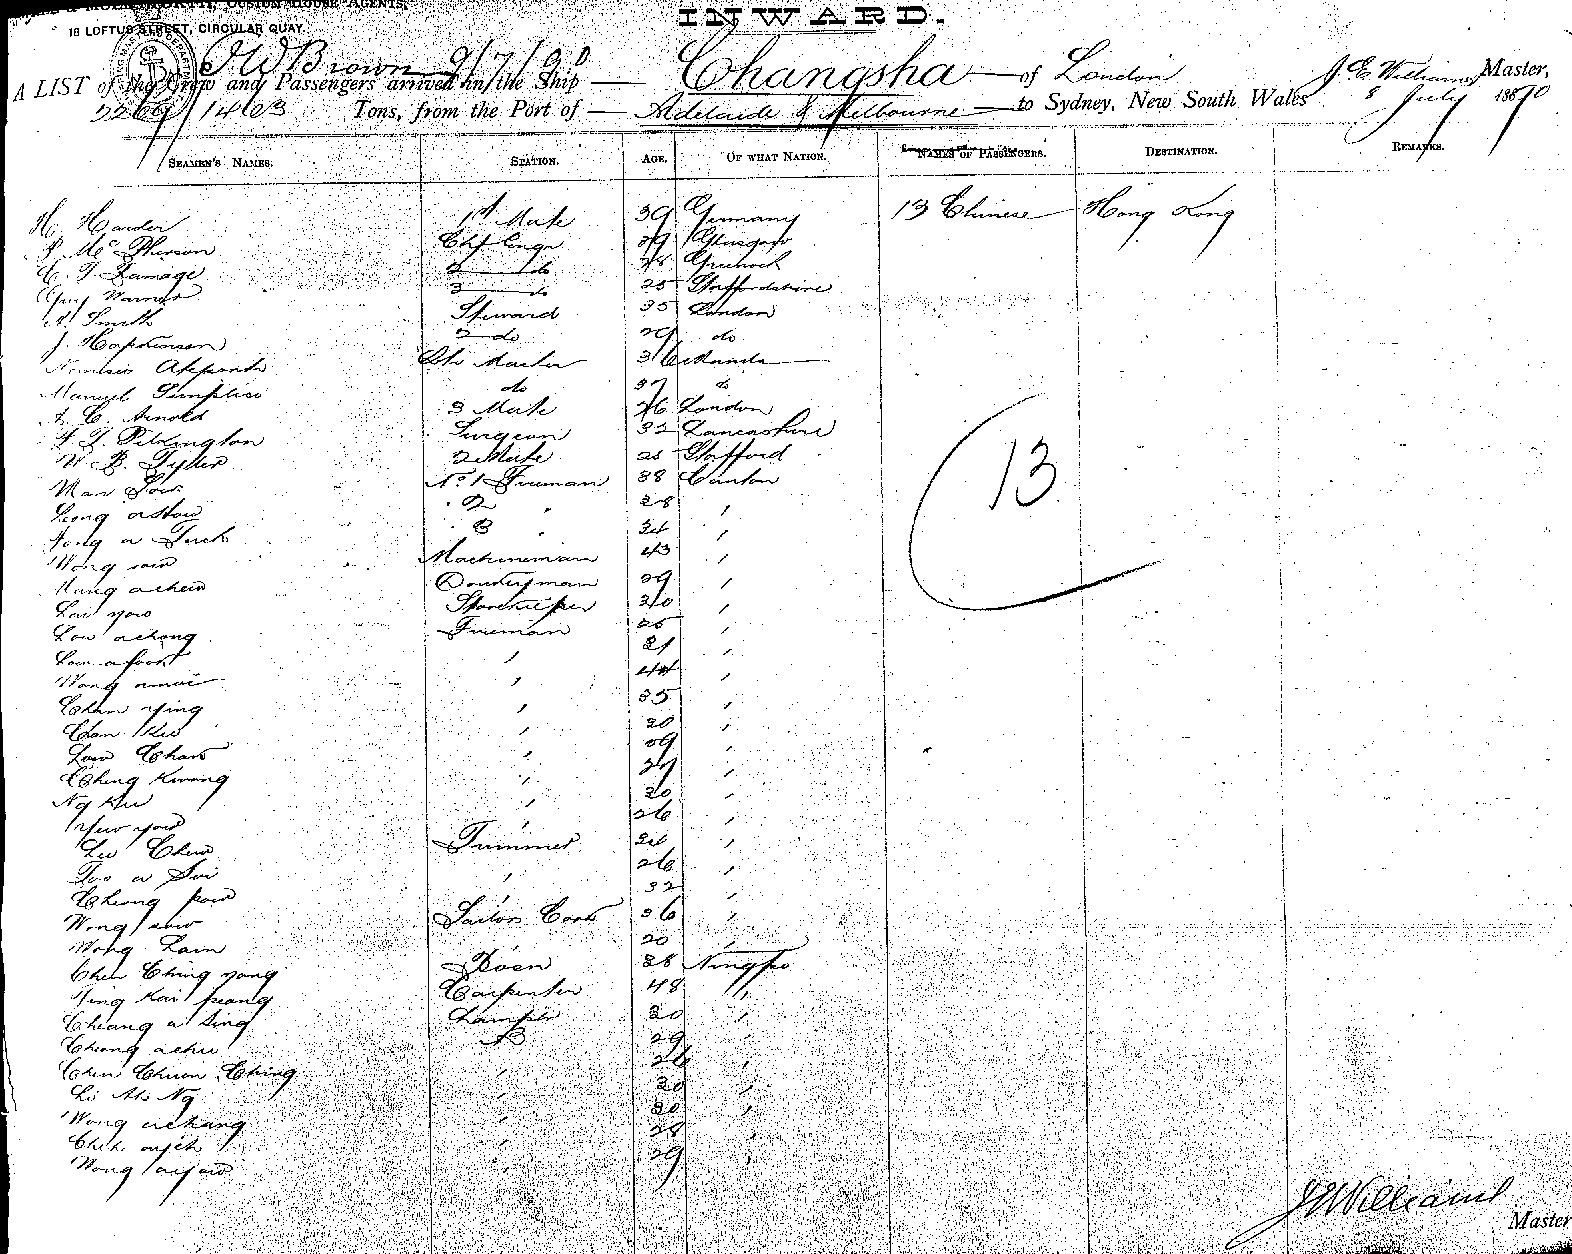 INWARD.
CUSTOM HOUSE AGENTS,
18 LOFTUS STREET, CIRCULAR QUAY.
J W Brown 9/7/90
A LIST of the Crew and Passengers arrived in the Ship Changsha of London J. E. Williams Master,
2269/1463 Tons, from the Port of Adelaide & Melbourne to Sydney, New South Wales 8 July 1890
SEAMEN'S NAMES. STATION. AGE. OF WHAT NATION. NAMES OF PASSENGERS. DESTINATION. REMARKS.
H. Harder 1st Mate 39 Germany 13 Chinese Hong Kong
P. McPherson Chf Engr 39 Glasgow
C. T. Ramage 2 do 28 Greenock
Warner 3 do 25 Staffordshire
A. Smith Steward 35 London
J. Hopkinson 2 do 29 do
36 Manila
Manuel Simplico do 37 do
A. C. Arnold 3 Mate 26 London
F. T. Pilkington Surgeon 32 Lancashire
W. B. Tyler 2 Mate 25 Stafford
Man Sow No 1 Fireman 38 Canton
Leong 2 " 28 "
Fong a Tuck 3 " 34 "
Wong sow Machineman 43 "
Wang achew Donkeyman 29 "
Lai yow Storekeeper 30 "
Low achong Fireman 25 "
Low afook " 21 "
Wong " 44 "
Chan ying " 35 "
Chan Kew " 20 "
Low Chow " 39 "
Ching Kwong " 27 "
Ng Kew " 20 "
Yew yow " 26 "
Lee Chew Trimmer 24 "
Too a Soi " 26 "
Cheong pow " 32 "
Wong sow Sailors Cook 36 "
Wong Lam 20 "
Chen Ching yong Bosn 38 Ningpo
Ning Kai peang Carpenter 48 "
Cheang a Sing Lamps 20 "
Cheong achu 29
Chen Chuen Ching " 26 "
Li Ah Ng " 20 "
Wong achang " 30 "
" 28 "
Wong " 29 "
13
J E Williams
Master